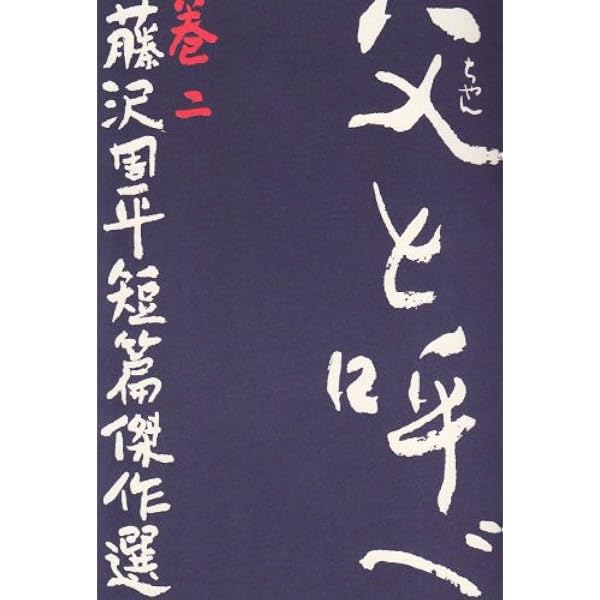 父と呼べ
ちゃん
巻二
藤沢周平短篇傑作選